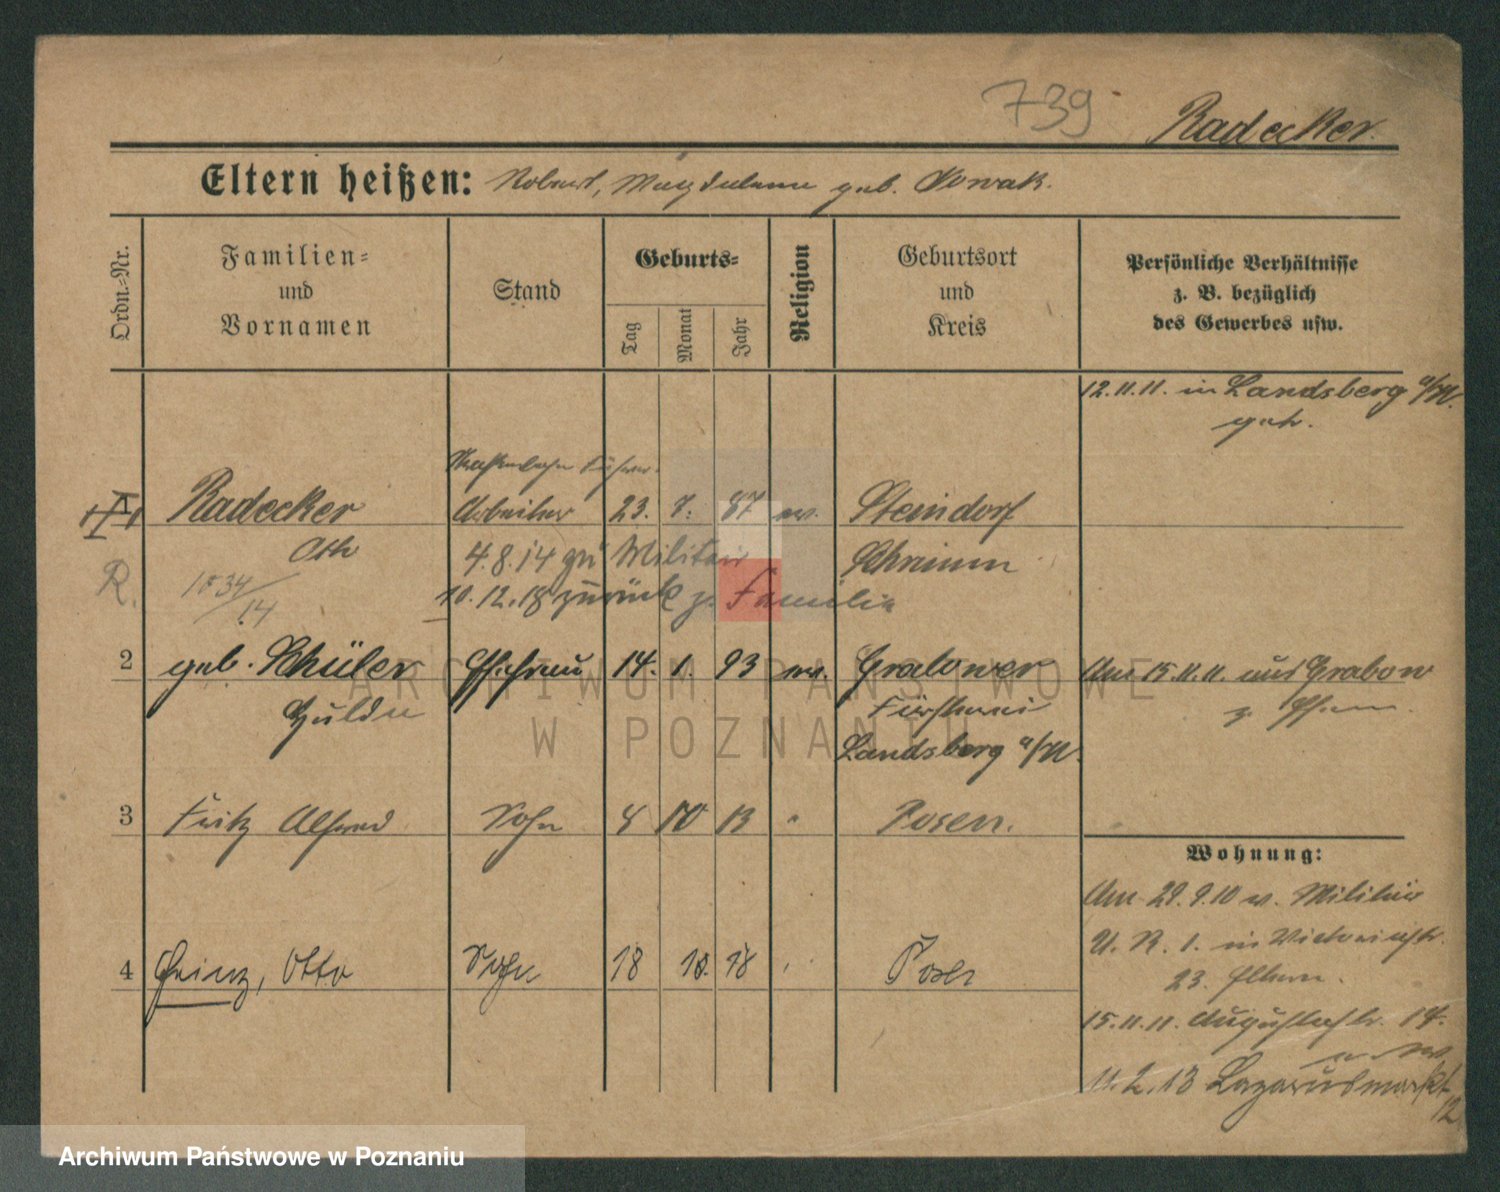 739
Radecker.
Eltern heißen: Robert, Magdalena geb. Nowak.
Ordn.-Nr.
Familien-
und
Vornamen
Stand
Geburts-
Tag
Monat
Jahr
Religion
Geburtsort
und
Kreis
Persönliche Verhältnisse
z. B. bezüglich
des Gewerbes usw.
12.11.11. in Landsberg a/W.
geh.
Straßenbahn Führer.
1 Radecker Arbeiter 23. 7. 87 ev. Steindorf
Otto 4.8.14 zu Militair Schrimm
R. 1834/14 10.12.18 zurück z. Familie
2 geb. Schüler Ehefrau 14. 1. 93 ev. Gralower Am 15.11.11. aus Grabow
Hulda Försterei z. Ehem.
Landsberg a/W.
3 Fritz Alfred Sohn 8 10 13 " Posen.
Wohnung:
Am 29.9.10 v. Militär
U. R. 1. in Victoriastr.
23. Eltern.
4 Heinz, Otto Sohn 18 10. 18 Posen
15.11.11. Augustastr. 14.
11.2.13 Lazarusmarkt
12
ARCHIWUM PAŃSTWOWE
W POZNANIU
Archiwum Państwowe w Poznaniu